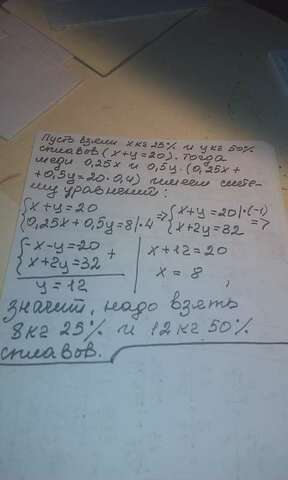 Пусть взяли x кг 25% и y кг 50%
сплавов (x+y=20). Тогда
меди 0,25x и 0,5y. (0,25x+
+0,5y=20·0,4) имеем систе-
му уравнений:
{x+y=20 {x+y=20|·(-1)
{0,25x+0,5y=8|·4 => {x+2y=32 =>
{-x-y=20 + | x+12=20
{x+2y=32 | x=8,
y=12
значит, надо взять
8кг 25% и 12кг 50%
сплавов.